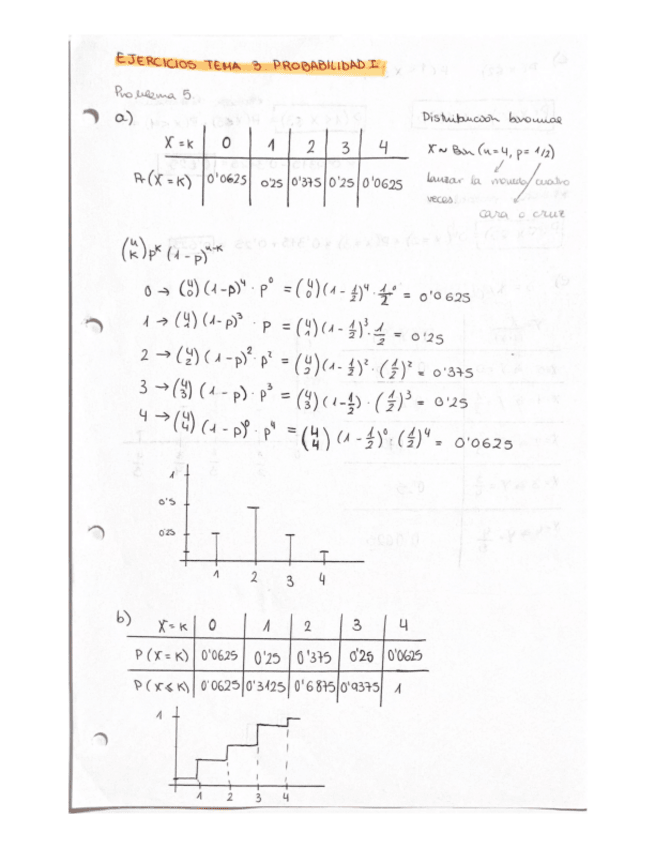 EJERCICIOS TEMA 3 PROBABILIDAD I.
Problema 5
a)
X=K | 0 | 1 | 2 | 3 | 4
Pr(X=K) | 0'0625 | 0'25 | 0'375 | 0'25 | 0'0625
Distribución binomial
X ~ Bin (n=4, p=1/2)
lanzar la moneda cuatro
veces
cara o cruz
(n K) p^K (1-p)^n-K
0 → (4 0) (1-p)^4 · p^0 = (4 0) (1-1/2)^4 · 1/2^0 = 0'0625
1 → (4 1) (1-p)^3 · p = (4 1) (1-1/2)^3 · 1/2 = 0'25
2 → (4 2) (1-p)^2 · p^2 = (4 2) (1-1/2)^2 · (1/2)^2 = 0'375
3 → (4 3) (1-p) · p^3 = (4 3) (1-1/2) · (1/2)^3 = 0'25
4 → (4 4) (1-p)^0 · p^4 = (4 4) (1-1/2)^0 · (1/2)^4 = 0'0625
1
0'5
0'25
1 2 3 4
b)
X=K | 0 | 1 | 2 | 3 | 4
P(X=K) | 0'0625 | 0'25 | 0'375 | 0'25 | 0'0625
P(X≤K) | 0'0625 | 0'3125 | 0'6875 | 0'9375 | 1
1
1 2 3 4